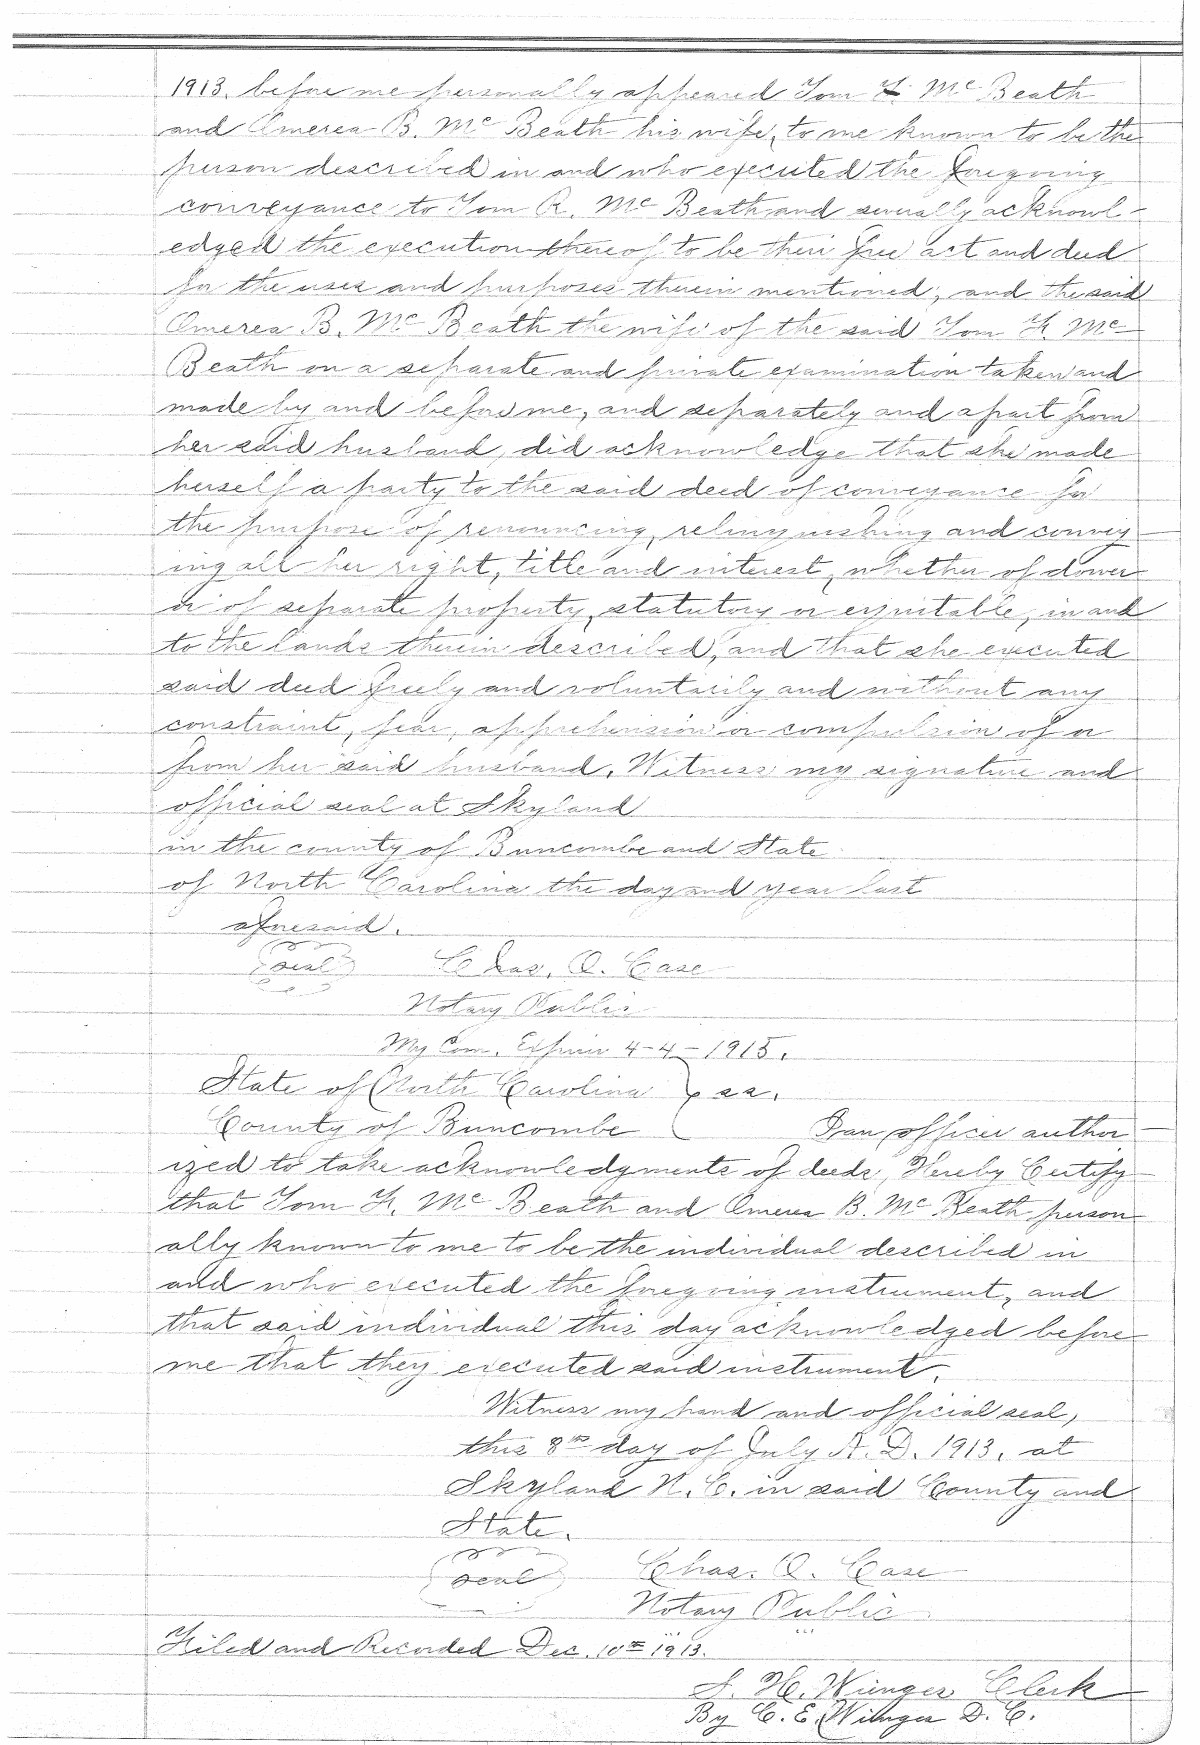 1913. before me personally appeared Tom F. Mc Beath
and Omerea B. Mc Beath his wife, to me known to be the
person described in and who executed the foregoing
conveyance to Tom R. Mc Beath and severally acknowl-
edged the execution thereof to be their free act and deed
for the uses and purposes therein mentioned; and the said
Omerea B. Mc Beath the wife of the said Tom F. Mc
Beath on a separate and private examination taken and
made by and before me, and separately and apart from
her said husband, did acknowledge that she made
herself a party to the said deed of conveyance for
the purpose of renouncing, relinquishing and convey
ing all her right, title and interest, whether of dower
or of separate property, statutory or equitable, in and
to the lands therein described, and that she executed
said deed freely and voluntarily and without any
constraint, fear, apprehension or compulsion of or
from her said husband. Witness my signature and
official seal at Skyland
in the county of Buncombe and State
of North Carolina the day and year last
aforesaid.
Seal Chas. O. Case
Notary Public
My Com. Expires 4-4-1915.
State of North Carolina } ss.
County of Buncombe I an officer author
ized to take acknowledgments of deeds, Hereby Certify
that Tom F. Mc Beath and Omerea B. Mc Beath person
ally known to me to be the individual described in
and who executed the foregoing instrument, and
that said individual this day acknowledged before
me that they executed said instrument.
Witness my hand and official seal,
this 8th day of July A. D. 1913, at
Skyland N. C. in said County and
State.
Seal Chas. O. Case
Notary Public
Filed and Recorded Dec. 10th 1913.
S. H. Wienges Clerk
By C. E. Wienges D. C.